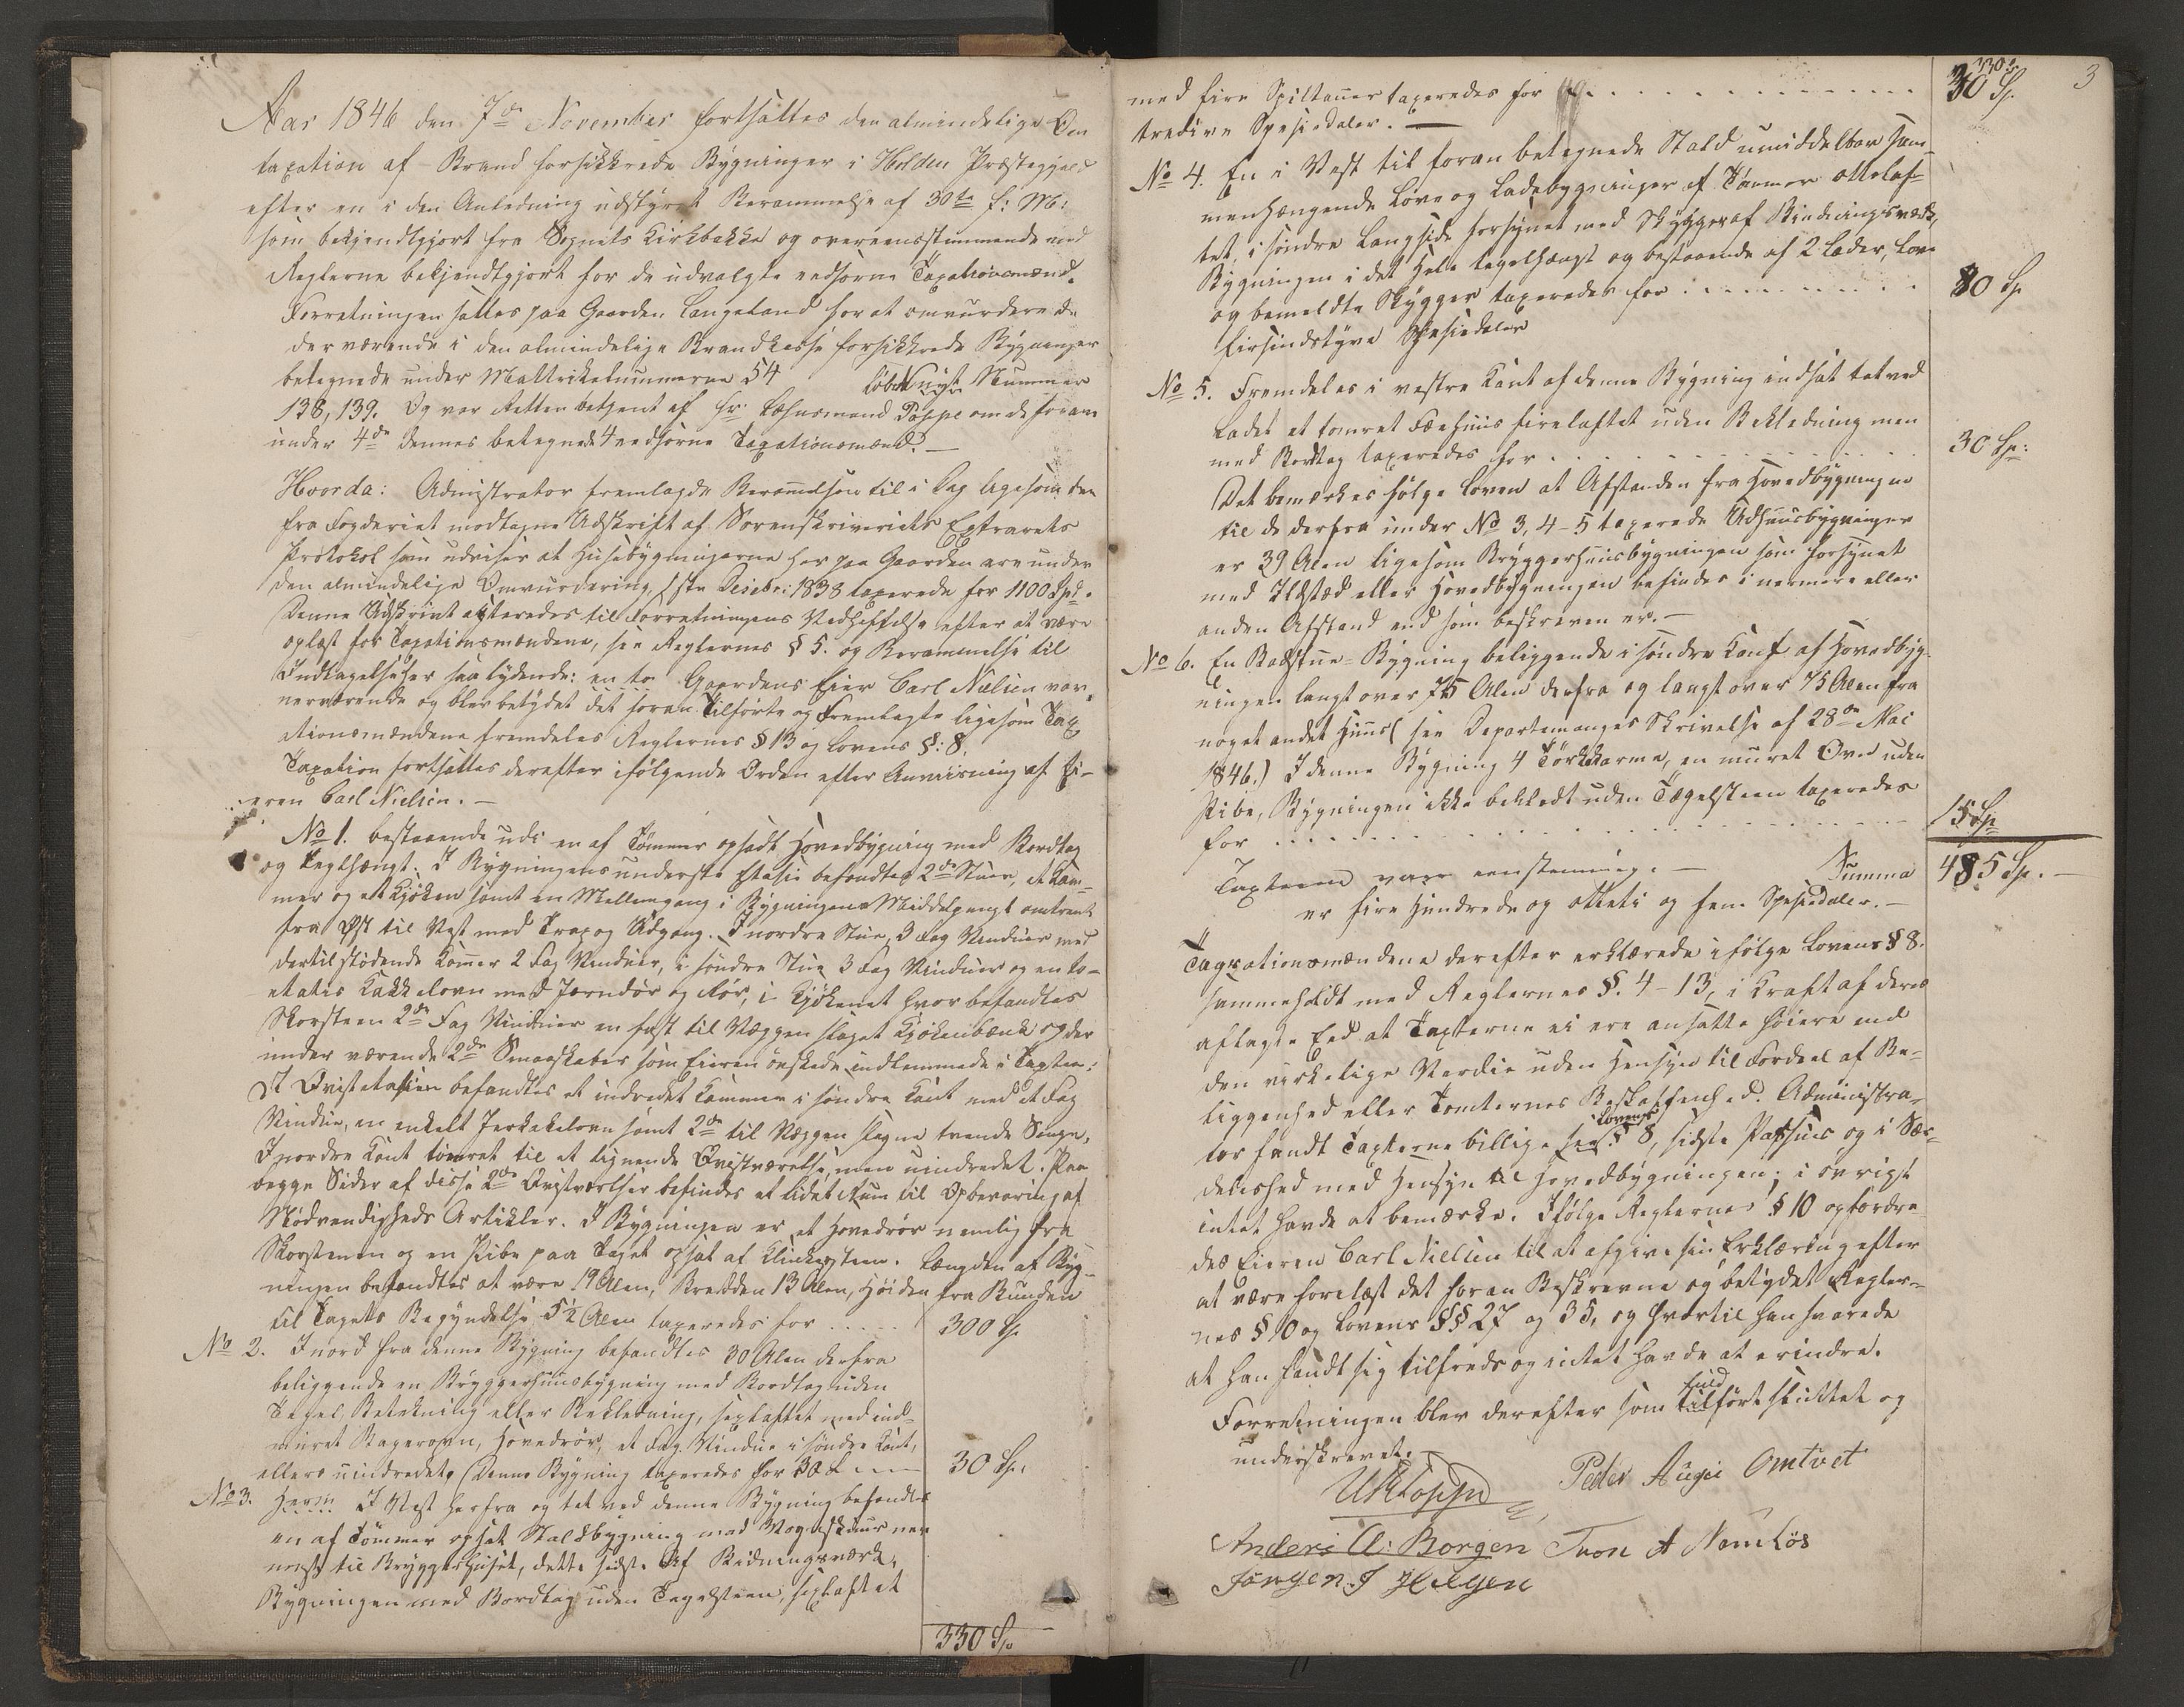 Aar 1846 den 7de November fortsattes den almindelige Om
taxation af Brand forsikkrede Bygninger i Holden Præstegjeld
efter en i den Anledning udstyret Berammelse af 30te f: M:
som bekjendtgjort fra Sognets Kirkebakke og overeensstemmende med
Reglerne bekjendtgjort for de udvalgte eedsorne Taxationsmænd.
Forretningen sattes paa Gaarden Langeland for at omvurdere de
der værende i den almindelige Brandkasse forsikkrede Bygninger
betegnede under Mattrikelnummerne 54 løbe Nyt Nummer
138, 139. Og var Retten betjent af Hr. Lehnsmand Toppe om de foran
under 4de dennes betegnede 4 eedsorne Taxationsmænd. —
Hvorda: Admistrator fremlagde Berammelsen til i Dag ligesom den
fra Fogderiet modtagne Udskrift af Sorenskriveriets Extrarets
Protokol som udviser at Husebygningerne her paa Gaarden ere under
den almindelige Omvurdering, 1ste Desebr: 1838 taxerede for 1100 Spd.
Denne Udskrivt acteredes til Forretningens Vedheftelse efter at være
oplæst for Taxationsmændene, see Reglernes § 5. og Berammelse til
Indtagelse her saa lydende: en to Gaardens Eier Carl Nielsen var
nerværende og blev betydet det foran Tilførte og Fremlagte ligesom Tax
ationsmændene fremdeles Reglernes § 13 og Lovens §: 8.
Taxation fortsattes derefter ifølgende Orden efter Anviisning af Ei-
eren Carl Nielsen. —
No 1. bestaaende udi en af Tømmer opsadt Hovedbygning med Bordtag
og teglhængt. I Bygningens underste Etasie befandtes 2de Stuer, et Kam-
mer og et Kjøken samt en Mellemgang i Bygningens Middelpungt omtrent
fra Øst til Vest med Trap og Udgang. I nordre Stue, 3 Fag Vinduer med
dertil stødende Kamer 2 Fag Vinduer, i søndre Stue 3 Fag Vinduer og en to-
etates Kakkelovn med Jerndør og Rør, i Kjøkenet hvor befandtes
Skorsteen 2de Fag Vinduer en fast til Væggen slaget Kjøkenbænk og der
under værende 2de Smaaskaber som Eieren ønskede indlemmede i Taxten:
I Qvistetasien befandtes et indredet Kammer i søndre Kant med et Fag
Vindue, en enkelt Jernkakelovn samt 2de til Væggen slagne trende Senge,
I nordre Kant tømret til et lignende Qvistværelse, men uindredet. Paa
begge Sider af disse 2de Qvistværelser befindes et lidet Rum til Opbevaring af
Nødvendigheds Artikler. I Bygningen er et Hovedrør nemlig fra
Skorstenen og en Pibe paa Taget opsat af Klinkesteen. Længden af Byg-
ningen befandtes at være 19 Alen, Bredden 13 Alen, Høiden fra Bunden
til Tagets Begyndelse 5½ Alen taxeredes for ..... 300 Sp.
No 2. I nord fra denne Bygning befandtes 30 Alen derfra
beliggende en Bryggerhuusbygning med Bordtag uden
Tegel, Betekning eller Bekledning, sexlaftet med ind-
muret Bagerovn, Hovedrør, et Fag Vindue i søndre Kant,
ellers uindredet, Denne Bygning taxeredes for 30 .... 30 Sp.
No 3. I Vest herfra og tet ved denne Bygning befandtes
en af Tømmer opsat Staldbygning med Vognskuur nær
nest til Bryggerhuset, dette sidste af Bindningsværk,
Bygningen med Bordtag uden Tagelsteen, sexlaftet
330 Sp.
3
330 Sp.
med fire Spiltauer taxeredes for ............ 30 Sp.
tredive Spesiedaler. —
No 4. En i Vest til foran betegnede Stald umiddelbar sam-
menhængende Love og Ladebygninger af Tømmer ottelaf-
tet, i søndre Langside forsynet med Skygger af Bindningsværk,
Bygningen i det Hele tegelhængt og bestaaende af 2 Lader, Love
og bemeldte Skygger taxeredes for ......... 80 Sp
firsindstyve Spesiedaler
No 5. Fremdeles i vestre Kant af denne Bygning indsat tet ved
Ladet et tomret Fæehuus firelaftet uden Bekledning men
med Bordtag taxeredes for ............ 30 Sp:
Det bemærkes følge Loven at Afstanden fra Hovedbygningen
til de derfra under No 3, 4-5 taxerede Udhuusbygninger
er 39 Alen ligesom Bryggerhuusbygningen som forsynet
med Ildsted eller Hovedbygningen befindes i nermere eller
anden Afstand end som beskreven er. —
No 6. En Badstue-Bygning beliggende i søndre Kant af Hovedbyg-
ningen langt over 75 Alen derfra og langt over 75 Alen fra
noget andet Huus (see Departemanges Skrivelse af 28de Mai
1846.) I denne Bygning 4 Tørkkarme, en muret Ovn uden
Pibe, Bygningen ikke bekledt uden Tægelsteen taxeredes
for ................ 15 Sp
Taxterne vare eenstemmig. — Summa 485 Sp. —
er fire Hundrede og otteti og fem Spesiedaler. —
Tagxationsmændene derefter erklærede i følge Lovens § 8.
sammeholdt med Reglernes §. 4-13, i Kraft af deres
aflagte Eed at Taxterne ei ere ansatte høiere end
den virkelige Verdie uden Hensyn til Fordeel af Be-
liggenhed eller Tomternes Beskaffenhed. Administra-
tor fandt Taxterne billige see Lovens § 8, sidste Passus og i Sær-
deleshed med Hensyn til Hovedbygningen; i øvrigt
intet havde at bemærke. Ifølge Reglernes § 10 opfordre-
des Eieren Carl Nielsen til at afgive sin Erklæring efter
at være forelæst det foran Beskrevne og betydet Regler-
nes § 10 og Lovens §§ 27 og 35, og hvortil han svarede
at han fandt sig tilfreds og intet havde at erindre.
Forretningen blev derefter som tilført sluttet og
underskrevet.
UHToppe Peder Aúgie Omtvet
Anders A: Borgen Tron A Nomeløs
Jørgen. J Helgen